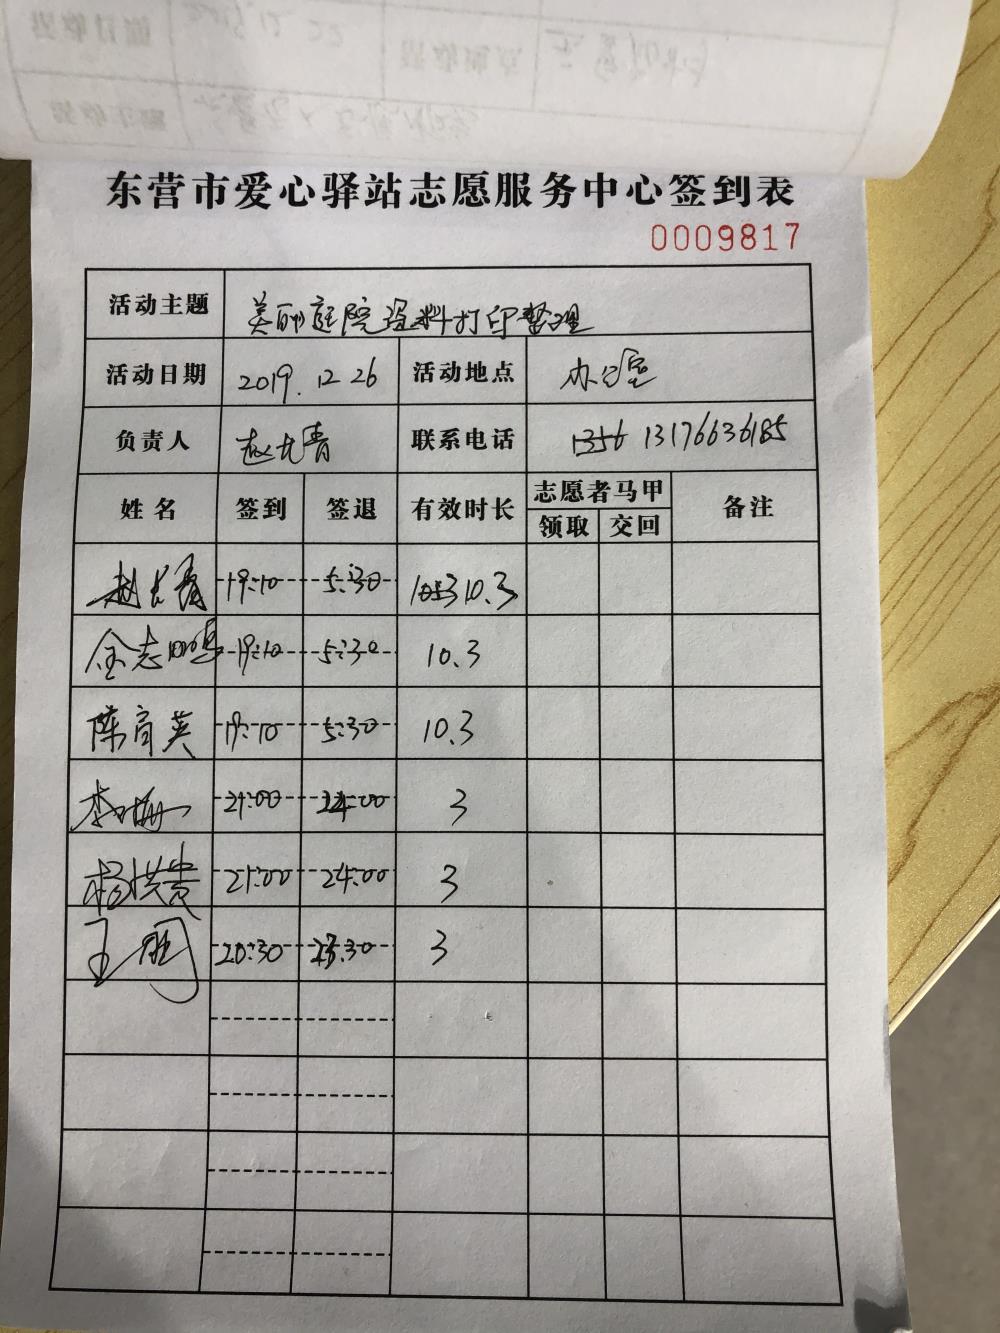 东营市爱心驿站志愿服务中心签到表
0009817
活动主题 美丽庭院资料打印整理
活动日期 2019.12 26 活动地点 办公室
负责人 赵长青 联系电话 1356 13176636185
姓名 签到 签退 有效时长 志愿者马甲 备注
领取 交回
赵长青 19:10 5:30 10.3
金志鸣 19:10 5:30 10.3
陈育英 19:10 5:30 10.3
李梅 21:00 24:00 3
杨洪贵 21:00 24:00 3
王刚 20:30 23:30 3